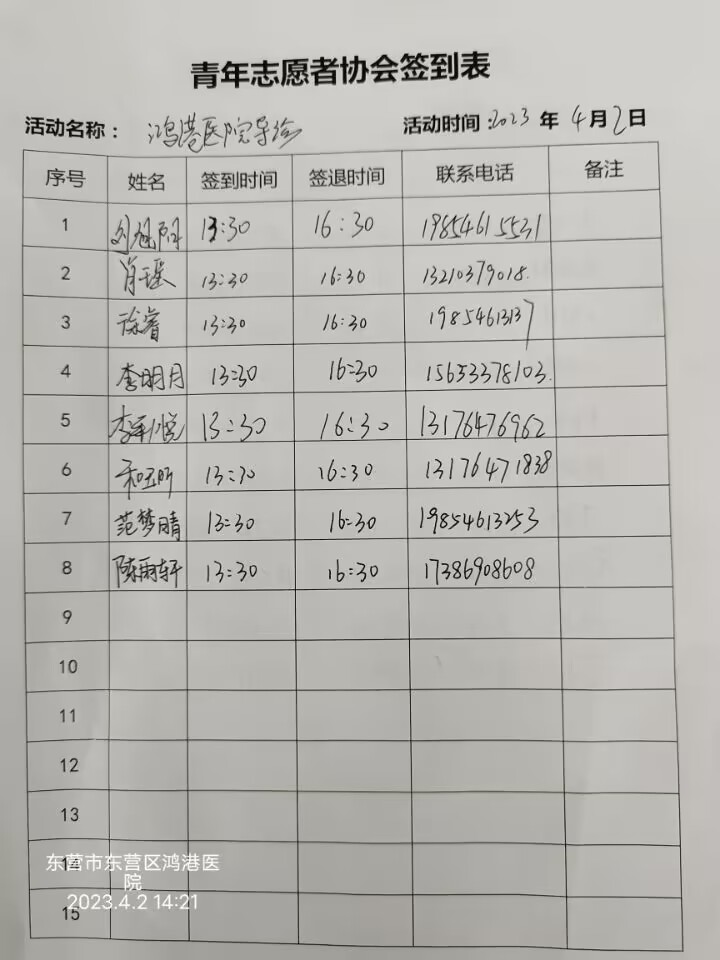 青年志愿者协会签到表
活动名称： 鸿港医院导诊 活动时间:2023 年 4月2日
序号 姓名 签到时间 签退时间 联系电话 备注
1 13:30 16:30 19854615531
2 肖瑶 13:30 16:30 13210379018.
3 徐睿 13:30 16:30 19854613137
4 李明月 13:30 16:30 15653378103.
5 13:30 16:30 13176476962
6 13:30 16:30 13176471838
7 范梦晴 13:30 16:30 19854613253
8 陈雨轩 13:30 16:30 17386908608
9
10
11
12
13
14
15
东营市东营区鸿港医
院
2023.4.2 14:21